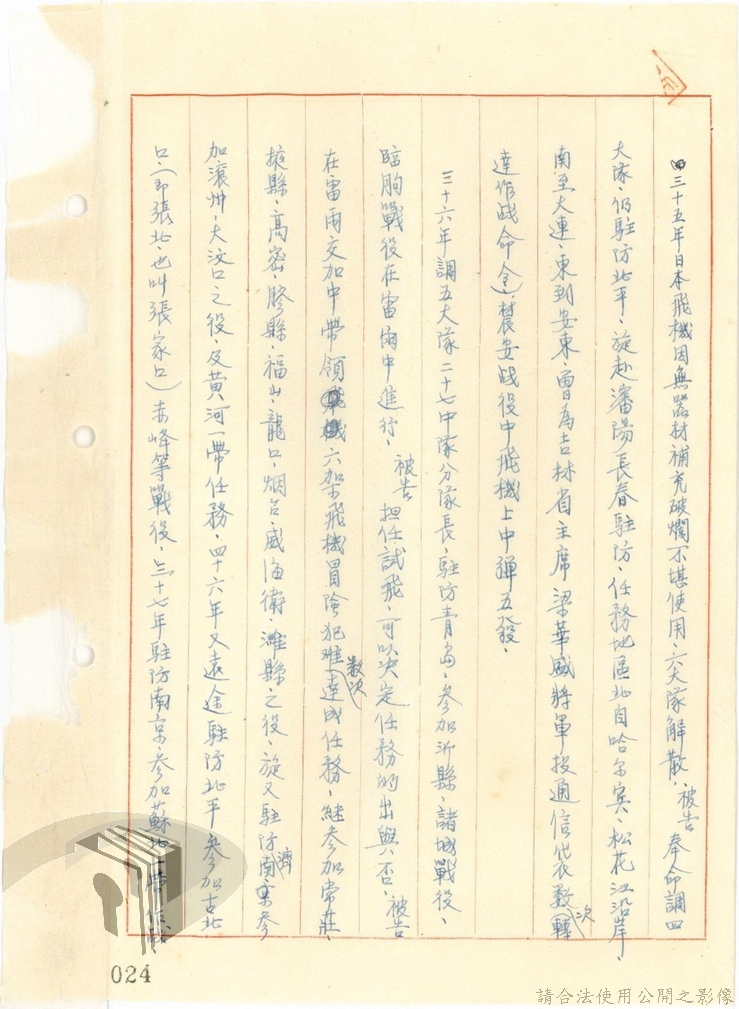 三十五年日本飛機因無器材補充破爛不堪使用、六大隊解散、被告奉命調四
大隊、仍駐防北平、旋赴瀋陽長春駐防、任務地區北自哈尔賓、松花江沿岸、
南至大連、東到安東、曾為吉林省主席梁華盛將軍投通信袋数次(轉
達作战命令)、農安战役中飛機上中彈五發、
三十六年調五大隊二十七中隊分隊長、駐防青島、參加沂縣、諸城戰役、
臨朐戰役在雷雨中進行、被告担任試飛、可以決定任務的出與否、被告
在雷雨交加中帶領六架飛機冒險犯难(数次)達成任務、継參加常莊、
掖縣、高密、膠縣、福山、龍口、烟台、威海衛、濰縣之役、旋又駐防濟南參
加滾州、大汶口之役、及黄河一帶任務、四十六年又遠途駐防北平參加古北
口、(即張北、也叫張家口)赤峰等戰役、三十七年駐防南京、參加蘇北一帶作战
024
請合法使用公開之影像